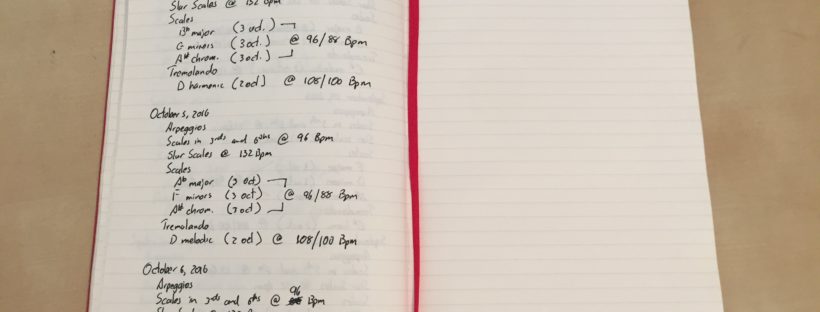 Slur Scales @ 132 Bpm
Scales
Bb major (3 oct.)
G minors (3 oct.) @ 96/88 Bpm
A# chrom. (3 oct.)
Tremolando
D harmonic (2 oct) @ 108/100 Bpm
October 5, 2016
Arpeggios
Scales in 3rds and 6ths @ 96 Bpm
Slur Scales @ 132 Bpm
Scales
Ab major (3 oct)
F minors (3 oct) @ 96/88 Bpm
A# chrom. (3 oct)
Tremolando
D melodic (2 oct) @ 108/100 Bpm
October 6, 2016
Arpeggios
Scales in 3rds and 6ths @ 96 Bpm
Slur Scales @ 132 Bpm